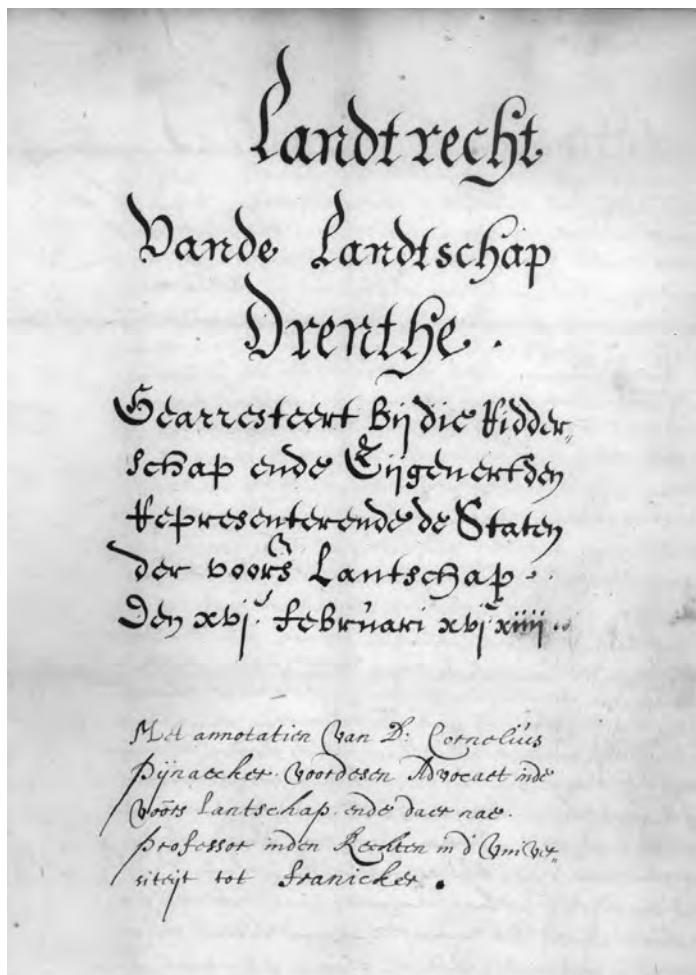 Landtrecht
Vande Landtschap
Drenthe.
Gearresteert bij die Ridder„
schap ende Eijgenerfden
Representerende de Staten
der voors Lantschap.
Den xvj. februari xvj xiiij.
Met annotatien van D: Cornelius
Pijnaecker voordesen Advocaet inde
voors Lantschap ende daer nae.
professor inden Rechten in d' univer„
siteijt tot franicker.